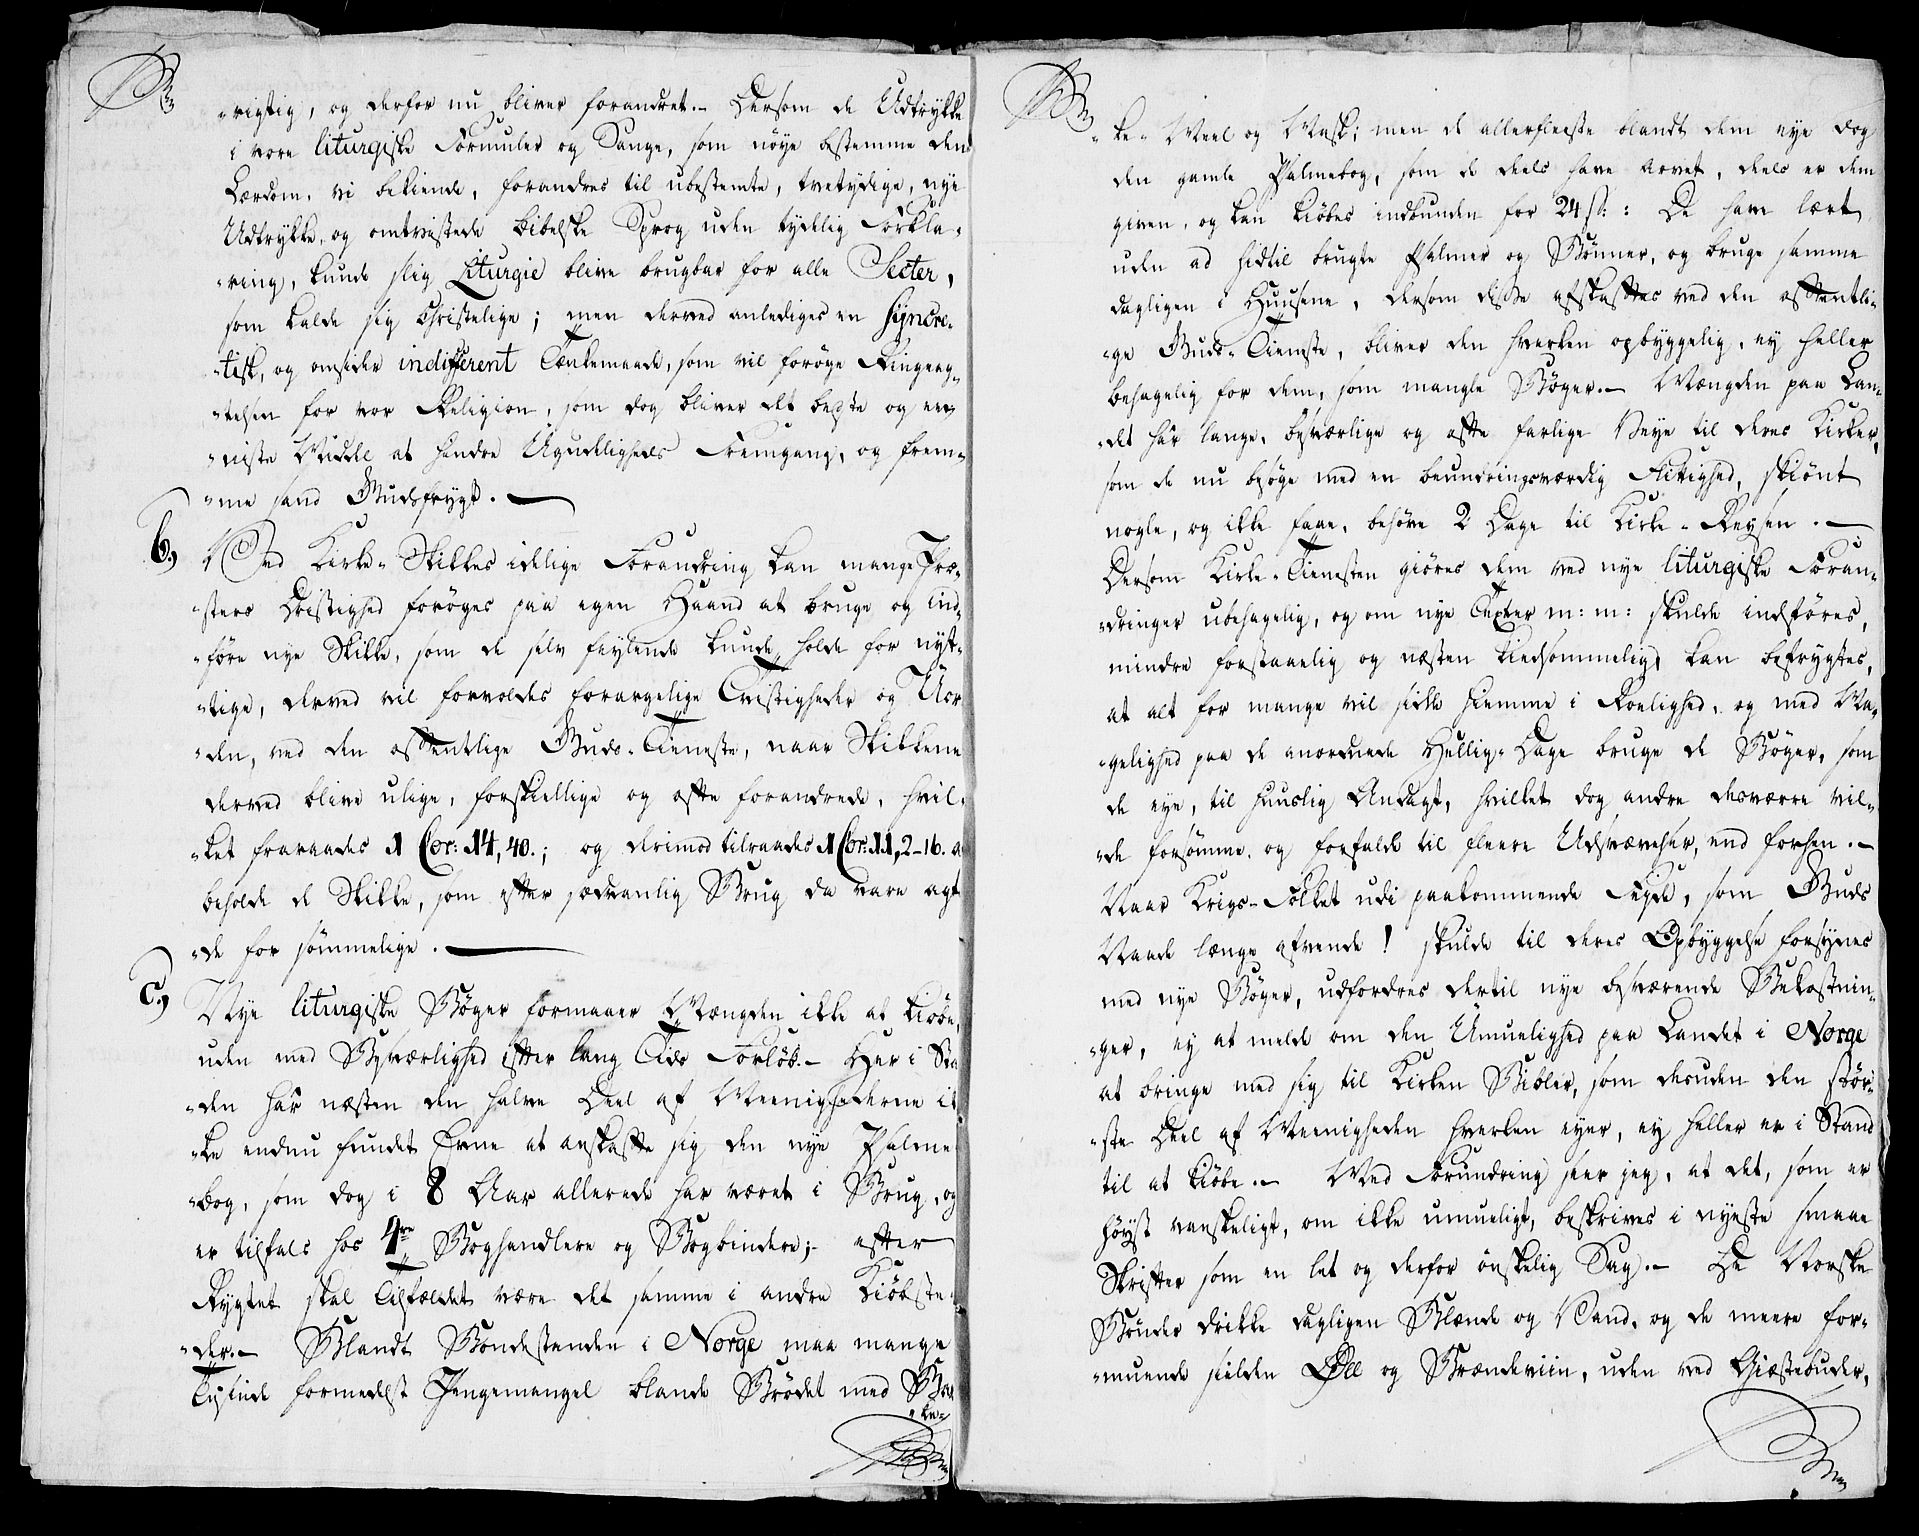 -rigtig, og derfor nu bliver forandret.- Dersom de Udtrykke
i vore liturgiske Formuler og Sange, som nöye bestemme den
Lærdom, vi bekiende, forandres til ubestemte, tvetydige, nye
Udtrykke, og omtvistede bibelske Sprog uden tydelig Forkla-
-ring, kunde slig Liturgie blive brugbar for alle Secter,
som kalde sig Christelige; men derved anlediges en Syncre-
-tisk, og omsider indifferent Tænkemaade, som vil foröge Ringeag-
-telsen for vor Religion, som dog bliver det beste og een
-niste Middel at hindre Ugudeligheds Fremgang, og frem-
-me sand Gudsfrygt. —
b, Ved Kirke-Skikkes idelige Forandring kan mange Præ-
-sters Dristighed foröges paa egen Haand at bruge og ind-
-före nye Skikke, som de selv feylende kunde holde for nyt-
-tige, derved vil forvoldes forargelige Tvistigheder og Uor
-den, ved den offentlige Guds-Tieneste, naar Skikkene
derved blive ulige, forskiellige og ofte forandrede, hvil-
-ket fraraades 1 Cor: 14, 40.; og derimod tilraades 1 Cor: 11, 2-16. a
beholde de Skikke, som efter sædvanlig Brug da vare agt
-de for sömmelige. —
c, Nye liturgiske Böger formaaer Mængden ikke at kiöbe,
uden med Besværlighed efter lang Tids Forlöb.- Her i Sta
-den har næsten den halve Deel af Meenighederne ik
-ke endnu fundet Evne at anskaffe sig den nye Psalme
-bog, som dog i 8 Aar allerede har været i Brug, og
er tilfals hos 4re Boghandlere og Bogbindere;- efter
Rygtet skal Tilfældet være det samme i andre Kiöbste-
-der.- Blandt Bondestanden i Norge maa mange
Tusinde formedelst Pengemangel blande Brödet med Bar
-ke-
-ke- Meel og Mask; men de allerfleeste blandt dem eye dog
den gamle Psalmebog, som de deels have arvet, deels er dem
given, og kan kiöbes indbunden for 24 sk: : De have lært
uden ad hidtil brugte Psalmer og Bönner, og bruge samme
dagligen i Huusene, dersom disse afskaffes ved den offentli-
-ge Guds-Tieneste, bliver den hverken opbyggelig, ey heller
behagelig for dem, som mangle Böger.- Mængden paa Lan-
-det har lange, besværlige og ofte farlige Veye til deres Kirker,
som de nu besöge med en beundringsværdig Flittighed, skiönt
nogle, og ikke faae, behöve 2 Dage til Kirke-Reysen. —
Dersom Kirke-Tienesten giöres dem ved nye liturgiske Foran-
-dringer ubehagelig, og om nye Texter m: m: skulde indföres,
mindre forstaaelig og næsten kiedsommelig, kan befrygtes,
at alt for mange vil sidde hiemme i Roelighed, og med Ma-
-gelighed paa de anordnede Hellig-Dage bruge de Böger, som
de eye, til huuslig Andagt, hvilket dog andre desværre vil-
-de forsömme, og forfalde til fleere Udsvævelser, end forhen.-
Naar Krigs-Folket udi paakommende Feyde, som Guds
Naade længe afvende! skulde til deres Opbyggelse forsynes
med nye Böger, udfordres dertil nye besværende Bekostnin-
-ger, ey at melde om den Umuelighed paa Landet i Norge
at bringe med sig til Kirken Bibler, som desuden den stör-
-ste Deel af Meenigheden hverken eyer, ey heller er i Stand
til at kiöbe.- Med Forundring seer jeg, at det, som er
höyst vanskeligt, om ikke umueligt, beskrives i nyeste smaae
Skrifter som en let og derfor önskelig Sag.- De Norske
Bönder drikke dagligen Blænde og Vand, og de meere for-
-muende sielden Öll og Brændeviin, uden ved Giæstebuder,